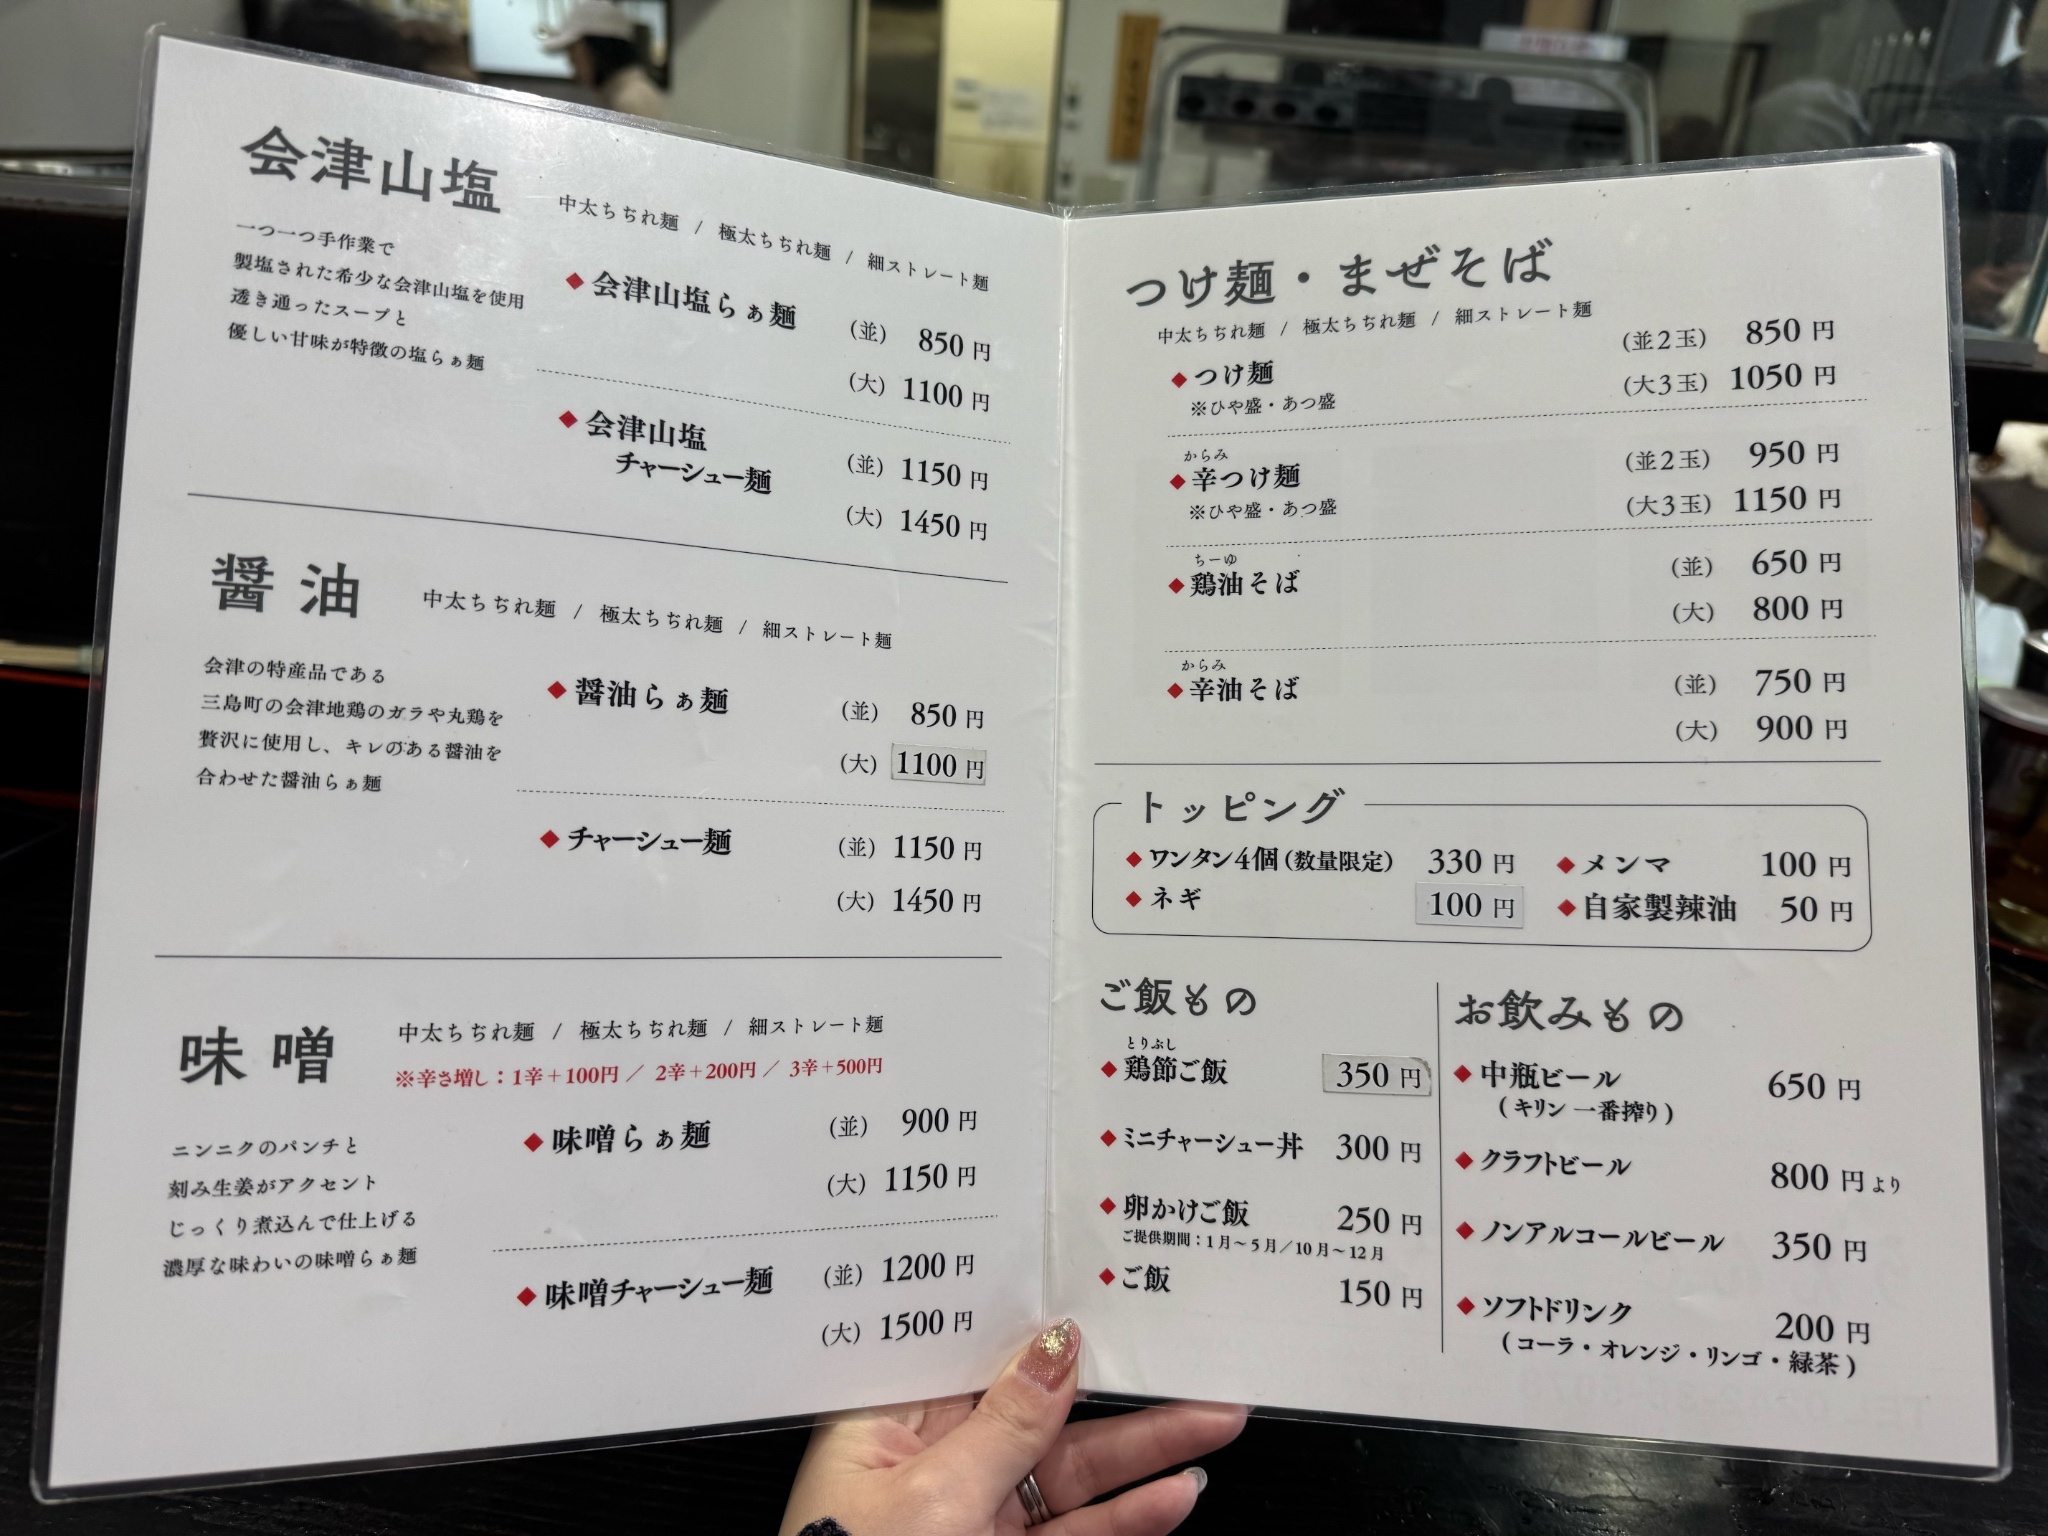 会津山塩
中太ちぢれ麺 / 極太ちぢれ麺 / 細ストレート麺
一つ一つ手作業で
製塩された希少な会津山塩を使用
透き通ったスープと
優しい甘味が特徴の塩らぁ麺
◆会津山塩らぁ麺 (並) 850円
(大) 1100円
◆会津山塩
チャーシュー麺 (並) 1150円
(大) 1450円
醤油
中太ちぢれ麺 / 極太ちぢれ麺 / 細ストレート麺
会津の特産品である
三島町の会津地鶏のガラや丸鶏を
贅沢に使用し、キレのある醤油を
合わせた醤油らぁ麺
◆醤油らぁ麺 (並) 850円
(大) 1100円
◆チャーシュー麺 (並) 1150円
(大) 1450円
味噌
中太ちぢれ麺 / 極太ちぢれ麺 / 細ストレート麺
※辛さ増し:1辛+100円 / 2辛+200円 / 3辛+500円
ニンニクのパンチと
刻み生姜がアクセント
じっくり煮込んで仕上げる
濃厚な味わいの味噌らぁ麺
◆味噌らぁ麺 (並) 900円
(大) 1150円
◆味噌チャーシュー麺 (並) 1200円
(大) 1500円
つけ麺・まぜそば
中太ちぢれ麺 / 極太ちぢれ麺 / 細ストレート麺
◆つけ麺 (並2玉) 850円
※ひや盛・あつ盛 (大3玉) 1050円
からみ
◆辛つけ麺 (並2玉) 950円
※ひや盛・あつ盛 (大3玉) 1150円
ちーゆ
◆鶏油そば (並) 650円
(大) 800円
からみ
◆辛油そば (並) 750円
(大) 900円
トッピング
◆ワンタン4個(数量限定) 330円
◆ネギ 100円
◆メンマ 100円
◆自家製辣油 50円
ご飯もの
とりぶし
◆鶏節ご飯 350円
◆ミニチャーシュー丼 300円
◆卵かけご飯 250円
ご提供期間:1月~5月/10月~12月
◆ご飯 150円
お飲みもの
◆中瓶ビール 650円
(キリン一番搾り)
◆クラフトビール 800円より
◆ノンアルコールビール 350円
◆ソフトドリンク 200円
(コーラ・オレンジ・リンゴ・緑茶)